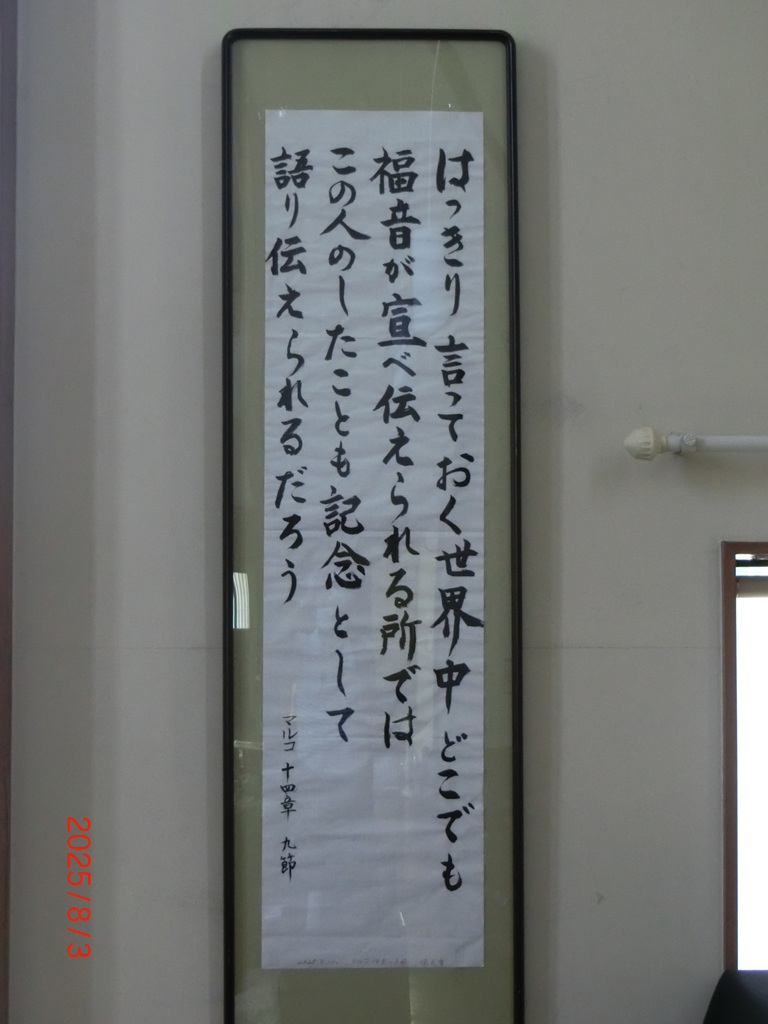 はっきり言っておく世界中どこでも
福音が宣べ伝えられる所では
この人のしたことも記念として
語り伝えられるだろう
マルコ 十四章 九節
2025/8/3